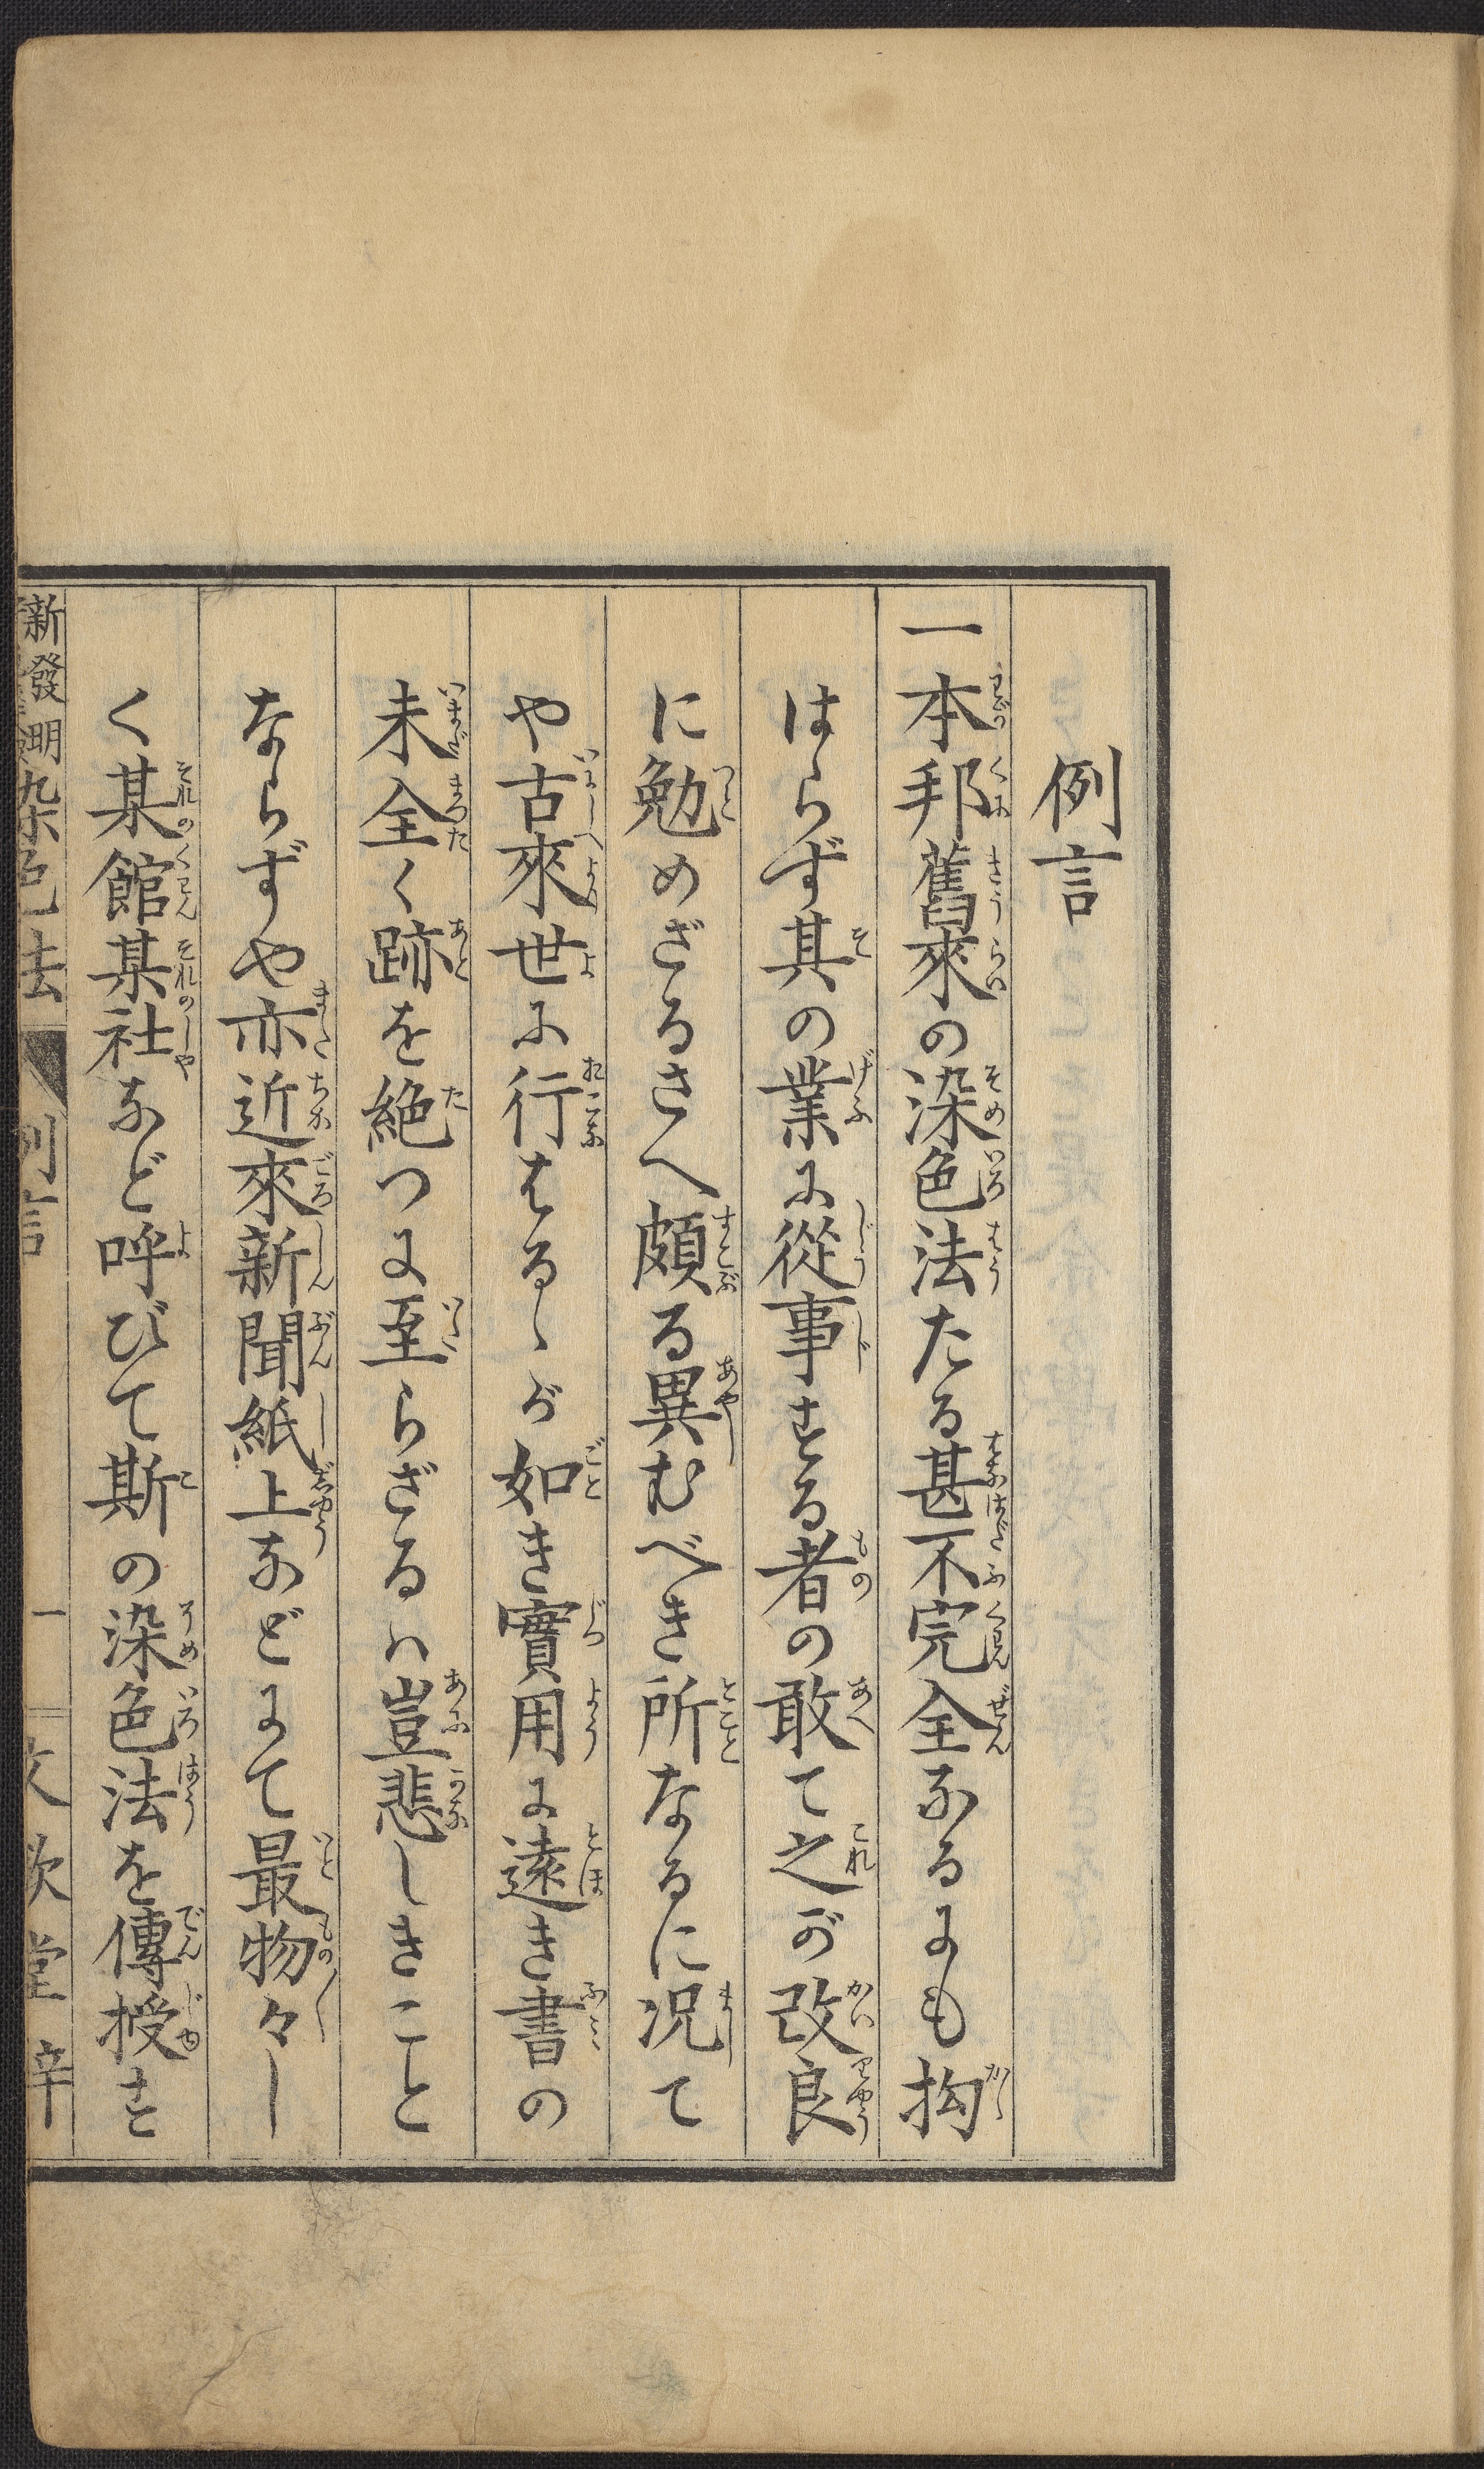 例言
一本邦舊來の染色法たる甚不完全なるにも拘
はらず其の業に從事する者の敢て之が改良
に勉めざるさへ頗る異むべき所なるに況て
や古來世に行はるゝが如き實用に遠き書の
未全く跡を絶つに至らざるハ豈悲しきこと
ならずや亦近來新聞紙上などにて最物々し
く某館某社など呼びて斯の染色法を傳授す
新發明染色法 例言 一